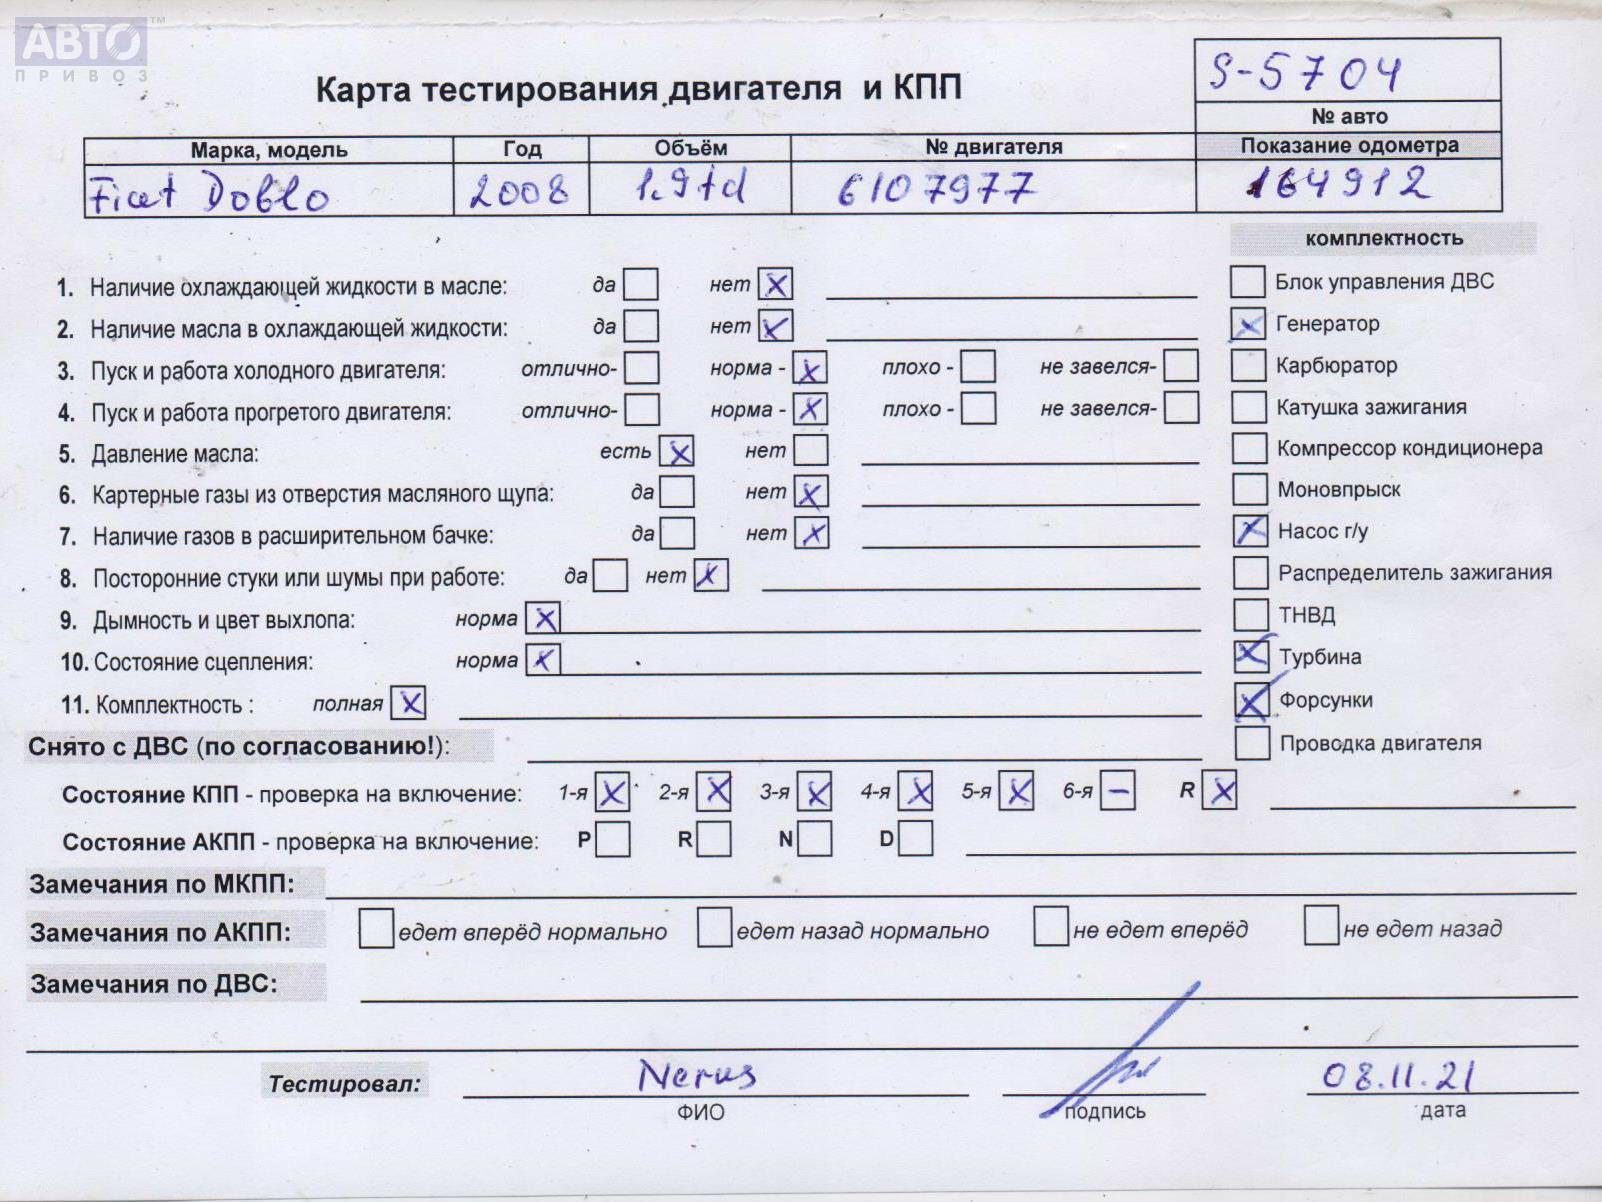 АВТО™
ПРИВОЗ
S-5704
Карта тестирования двигателя и КПП
№ авто
Марка, модель Год Объём № двигателя Показание одометра
Fiat Doblo 2008 1.9td 6107977 164912
комплектность
1. Наличие охлаждающей жидкости в масле: да нет X Блок управления ДВС
2. Наличие масла в охлаждающей жидкости: да нет X X Генератор
3. Пуск и работа холодного двигателя: отлично- норма - X плохо - не завелся- Карбюратор
4. Пуск и работа прогретого двигателя: отлично- норма - X плохо - не завелся- Катушка зажигания
5. Давление масла: есть X нет Компрессор кондиционера
6. Картерные газы из отверстия масляного щупа: да нет X Моновпрыск
7. Наличие газов в расширительном бачке: да нет X X Насос г/у
8. Посторонние стуки или шумы при работе: да нет X Распределитель зажигания
9. Дымность и цвет выхлопа: норма X ТНВД
10. Состояние сцепления: норма X X Турбина
11. Комплектность : полная X X Форсунки
Снято с ДВС (по согласованию!): Проводка двигателя
Состояние КПП - проверка на включение: 1-я X 2-я X 3-я X 4-я X 5-я X 6-я – R X
Состояние АКПП - проверка на включение: P R N D
Замечания по МКПП:
Замечания по АКПП: едет вперёд нормально едет назад нормально не едет вперёд не едет назад
Замечания по ДВС:
Тестировал: 08.11.21
ФИО подпись дата